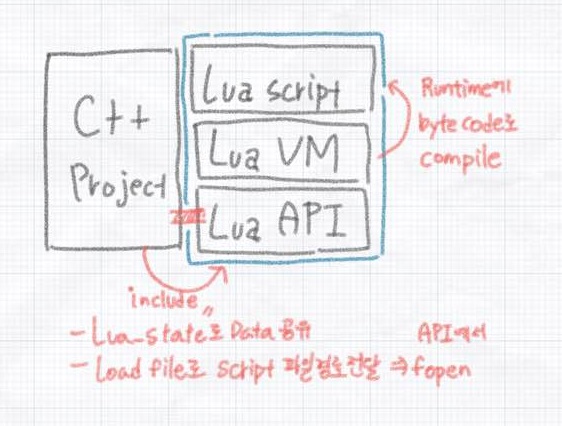 C++
Project
Lua script
Lua VM
Lua API
Runtime에
byte code로
compile
include
- Lua_state로 Data 공유
API에서
- Load file로 script 파일경로전달 ⇒ fopen